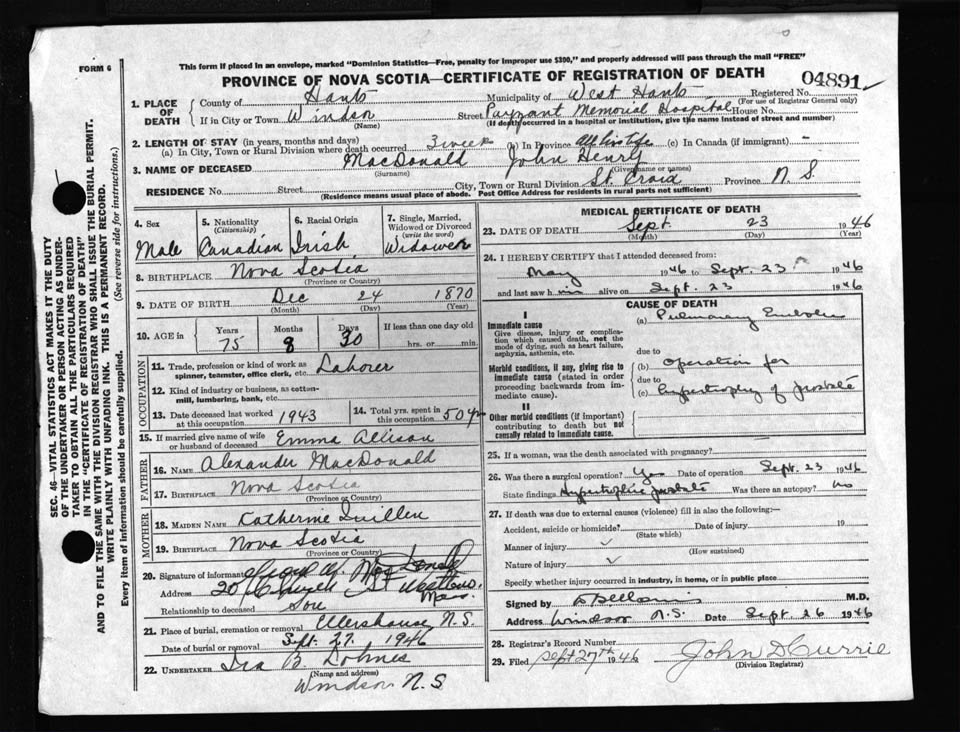 This form if placed in an envelope, marked "Dominion Statistics—Free, penalty for improper use $300," and properly addressed will pass through the mail "FREE"
FORM 6
PROVINCE OF NOVA SCOTIA—CERTIFICATE OF REGISTRATION OF DEATH
04891
1. PLACE OF DEATH
County of Hants Municipality of West Hants Registered No.
(For use of Registrar General only)
If in City or Town Windsor Street Payzant Memorial Hospital House No.
(Name) (If death occurred in a hospital or institution, give the name instead of street and number)
2. LENGTH OF STAY (in years, months and days)
(a) In City, Town or Rural Division where death occurred 3 week (b) In Province All his life (c) In Canada (if immigrant)
3. NAME OF DECEASED MacDonald John Henry
(Surname) (Given name or names)
RESIDENCE No. Street City, Town or Rural Division St. Croix Province N. S.
(Residence means usual place of abode. Post Office Address for residents in rural parts not sufficient)
4. Sex Male
5. Nationality (Citizenship) Canadian
6. Racial Origin Irish
7. Single, Married, Widowed or Divorced (write the word) Widower
8. BIRTHPLACE Nova Scotia
(Province or Country)
9. DATE OF BIRTH Dec 24 1870
(Month) (Day) (Year)
10. AGE in Years Months Days If less than one day old
75 8 30 hrs. or min.
OCCUPATION
11. Trade, profession or kind of work as spinner, teamster, office clerk, etc. Laborer
12. Kind of industry or business, as cotton-mill, lumbering, bank, etc.
13. Date deceased last worked at this occupation 1943
14. Total yrs. spent in this occupation 50 yr
15. If married give name of wife or husband of deceased Emma Allison
FATHER
16. NAME Alexander MacDonald
17. BIRTHPLACE Nova Scotia
(Province or Country)
MOTHER
18. MAIDEN NAME Catherine Quillen
19. BIRTHPLACE Nova Scotia
(Province or Country)
20. Signature of informant MacDonald
Address 20 Church St Mass.
Relationship to deceased Son
21. Place of burial, cremation or removal Ellershouse N.S.
Date of burial or removal Sept. 27. 1946
22. UNDERTAKER Ira B. Dohnes
(Name and address)
Windsor N.S
MEDICAL CERTIFICATE OF DEATH
23. DATE OF DEATH Sept. 23 1946
(Month) (Day) (Year)
24. I HEREBY CERTIFY that I attended deceased from:
May 1946 to Sept. 23 1946
and last saw him alive on Sept. 23 1946
CAUSE OF DEATH
I
Immediate cause
Give disease, injury or complication which caused death, not the mode of dying, such as heart failure, asphyxia, asthenia, etc.
(a) Pulmonary Embolus
due to
Morbid conditions, if any, giving rise to immediate cause (stated in order proceeding backwards from immediate cause).
(b) operation for
due to
(c) hypertrophy of prostate
II
Other morbid conditions (if important) contributing to death but not causally related to immediate cause.
25. If a woman, was the death associated with pregnancy?
26. Was there a surgical operation? Yes Date of operation Sept. 23 1946
State findings Hypertrophic prostate Was there an autopsy? no
27. If death was due to external causes (violence) fill in also the following:—
Accident, suicide or homicide? Date of injury 19
(State which)
Manner of injury
(How sustained)
Nature of injury
Specify whether injury occurred in industry, in home, or in public place
Signed by M.D.
Address Windsor N.S. Date Sept. 26 1946
28. Registrar's Record Number
29. Filed Sept 27th 1946 John D Currie
(Division Registrar)
SEC. 46—VITAL STATISTICS ACT MAKES IT THE DUTY
OF THE UNDERTAKER OR PERSON ACTING AS UNDER-
TAKER TO OBTAIN ALL THE PARTICULARS REQUIRED
IN THE "CERTIFICATE OF REGISTRATION OF DEATH"
AND TO FILE THE SAME WITH THE DIVISION REGISTRAR WHO SHALL ISSUE THE BURIAL PERMIT.
WRITE PLAINLY WITH UNFADING INK. THIS IS A PERMANENT RECORD.
Every item of information should be carefully supplied. (See reverse side for instructions.)